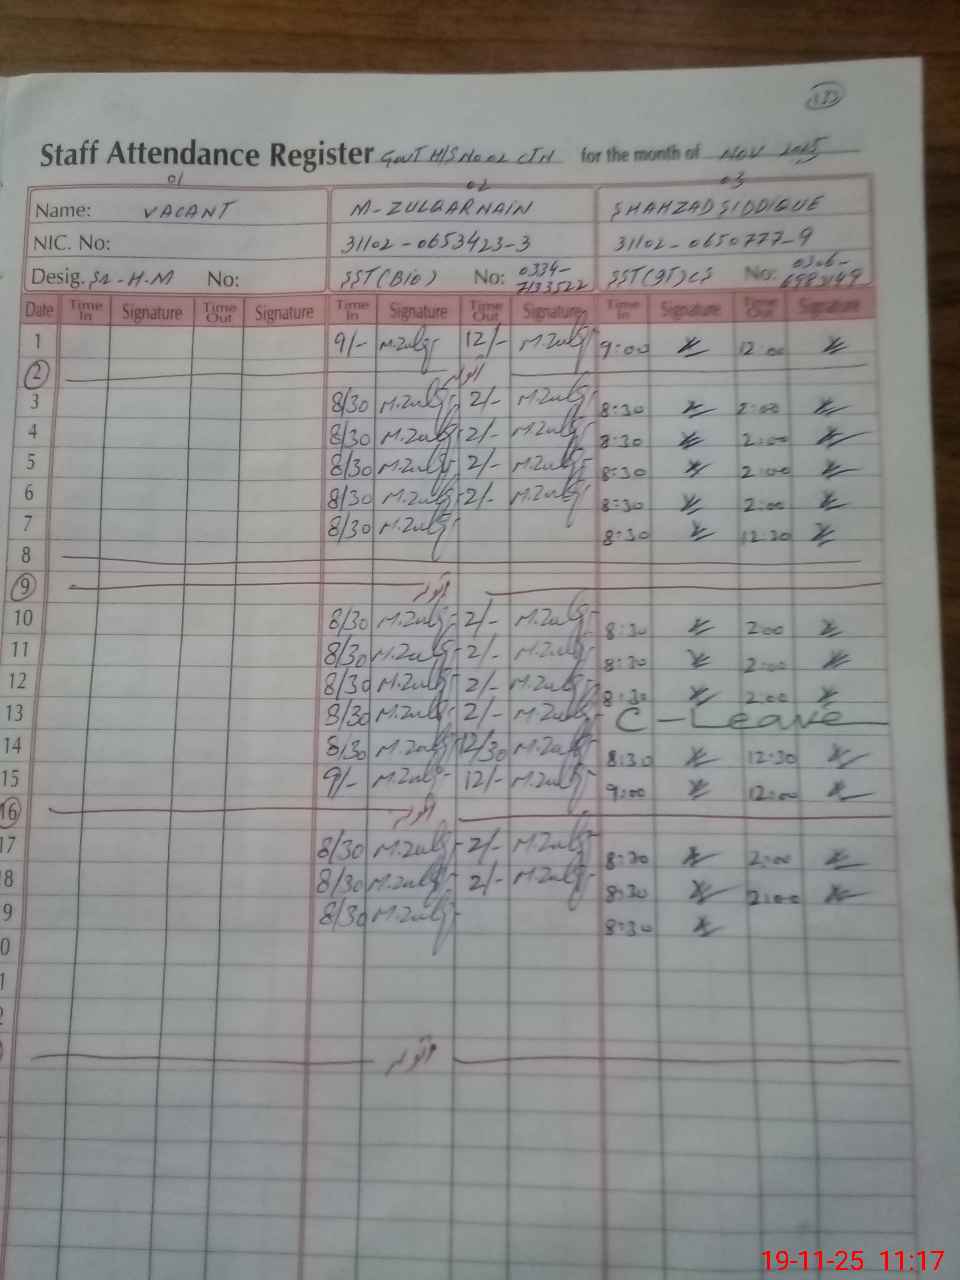 182
Staff Attendance Register GOVT H/S NO 02 CTN for the month of NOV 2025
01 02 03
Name: VACANT M-ZULQARNAIN SHAHZAD SIDDIQUE
NIC. No: 31102-0653423-3 31102-0650777-9
Desig. Sr-H.M No: SST(Bio) No: 0334-7133522 SST(9T)CS No: 0306-6983149
Date Time In Signature Time Out Signature Time In Signature Time Out Signature Time In Signature Time Out Signature
1 9/- M.Zulq 12/- M.Zulq 9:00 12:00
2 اتوار
3 8/30 M.Zulq 2/- M.Zulq 8:30 2:00
4 8/30 M.Zulq 2/- M.Zulq 8:30 2:00
5 8/30 M.Zulq 2/- M.Zulq 8:30 2:00
6 8/30 M.Zulq 2/- M.Zulq 8:30 2:00
7 8/30 M.Zulq 8:30 12:30
8
9 اتوار
10 8/30 M.Zulq 2/- M.Zulq 8:30 2:00
11 8/30 M.Zulq 2/- M.Zulq 8:30 2:00
12 8/30 M.Zulq 2/- M.Zulq 8:30 2:00
13 8/30 M.Zulq 2/- M.Zulq C-Leave
14 8/30 M.Zulq 12/30 M.Zulq 8:30 12:30
15 9/- M.Zulq 12/- M.Zulq 9:00 12:00
16 اتوار
17 8/30 M.Zulq 2/- M.Zulq 8:30 2:00
8 8/30 M.Zulq 2/- M.Zulq 8:30 2:00
9 8/30 M.Zulq 8:30
0
1
2
اتوار
19-11-25 11:17